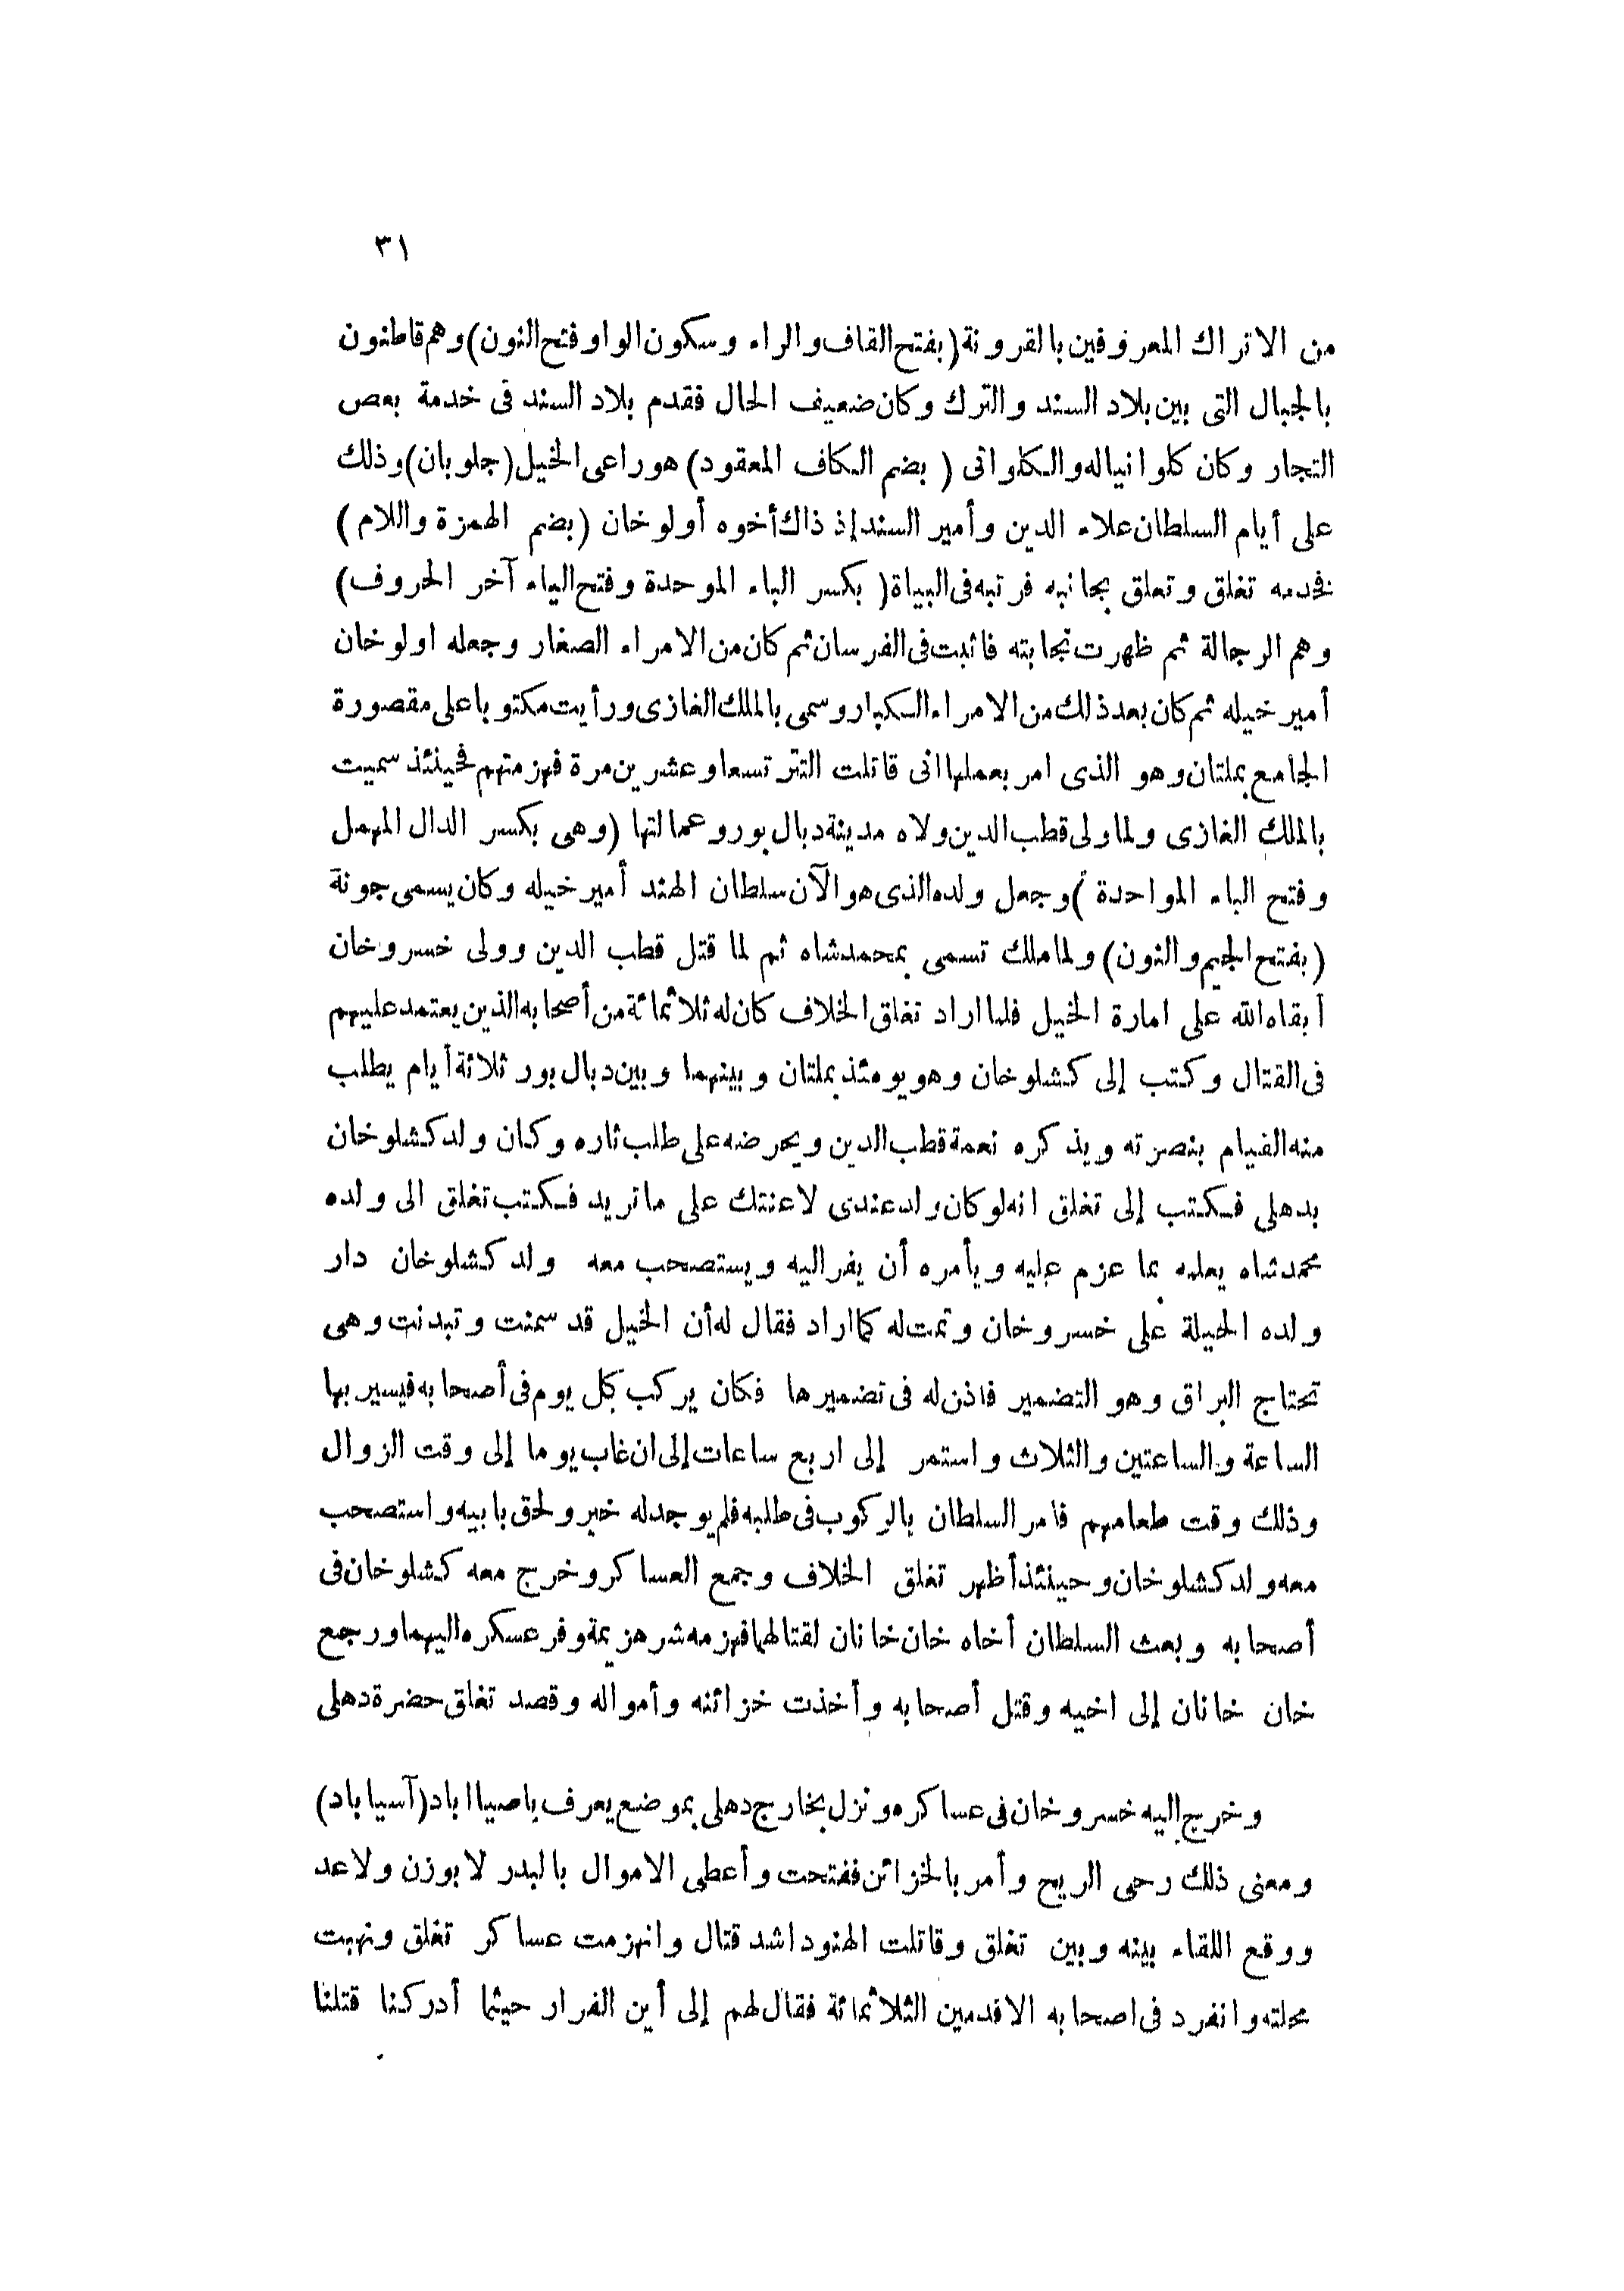 ٣١
من الاتراك المعروفين بالقرونة (بفتح القاف والراء وسكون الواو فتح النون) وهم قاطنون
بالجبال التى بين بلاد السند والترك وكان ضعيف الحال فقدم بلاد السند فى خدمة بعص
التجار وكان كلوانياله والكلوانى (بضم الكاف المعقود) هو راعى الخيل (جلوبان) وذلك
على أيام السلطان علاء الدين وأمير السند إذ ذاك أخوه أولوخان (بضم الهمزة واللام)
فخدمه تغلق وتعلق بجانبه فرتبه فى البياة (بكسر الباء الموحدة وفتح الياء آخر الحروف)
وهم الرجالة ثم ظهرت نجابته فاثبت فى الفرسان ثم كان من الامراء الصغار وجعله اولوخان
أمير خيله ثم كان بعد ذلك من الامراء الكبار وسمى بالملك الغازى ورأيت مكتوبا على مقصورة
الجامع بملتان وهو الذى امر بعملها انى قاتلت التتر تسعا وعشرين مرة فهزمتهم فحينئذ سميت
بالملك الغازى ولما ولى قطب الدين ولاه مدينة دبال بور وعمالتها (وهى بكسر الدال المهمل
وفتح الباء المواحدة) وجعل ولده الذى هو الآن سلطان الهند أمير خيله وكان يسمى جونة
(بفتح الجيم والنون) ولما ملك تسمى بمحمد شاه ثم لما قتل قطب الدين وولى خسروخان
أبقاه الله على امارة الخيل فلما اراد تغلق الخلاف كان له ثلاثمائة من أصحابه الذين يعتمد عليهم
فى القتال وكتب إلى كشلوخان وهو يومئذ بملتان وبينهما وبين دبال بور ثلاثة أيام يطلب
منه القيام بنصرته ويذكره نعمة قطب الدين ويحرضه على طلب ثاره وكان ولد كشلوخان
بدهلى فكتب إلى تغلق انه لو كان ولد عندى لاعنتك على ما تريد فكتب تغلق الى ولده
محمد شاه يعلمه بما عزم عليه ويأمره أن يفر اليه ويستصحب معه ولد كشلوخان دار
ولده الحيلة على خسروخان وتمت له كما اراد فقال له أن الخيل قد سمنت وتبدنت وهى
تحتاج البراق وهو التضمير فاذن له فى تضميرها فكان يركب كل يوم فى أصحابه فيسير بها
الساعة والساعتين والثلاث واستمر إلى اربع ساعات إلى ان غاب يوما إلى وقت الزوال
وذلك وقت طعامهم فامر السلطان بالركوب فى طلبه فلم يوجد له خبر ولحق بابيه واستصحب
معه ولد كشلوخان وحينئذ أظهر تغلق الخلاف وجمع العساكر وخرج معه كشلوخان فى
أصحابه وبعث السلطان أخاه خان خانان لقتالهما فهزمه شر هزيمة وفر عسكره اليهما ورجع
خان خانان إلى اخيه وقتل أصحابه وأخذت خزائنه وأمواله وقصد تغلق حضرة دهلى
وخرج اليه خسروخان فى عساكره ونزل بخارج دهلى بموضع يعرف باصيااباد (آسياباد)
ومعنى ذلك رحى الريح وأمر بالخزائن ففتحت وأعطى الاموال بالبدر لا بوزن ولاعد
ووقع اللقاء بينه وبين تغلق وقاتلت الهنود اشد قتال وانهزمت عساكر تغلق ونهبت
محلته وانفرد فى اصحابه الاقدمين الثلاثمائة فقال لهم إلى أين الفرار حيثما أدركنا قتلنا